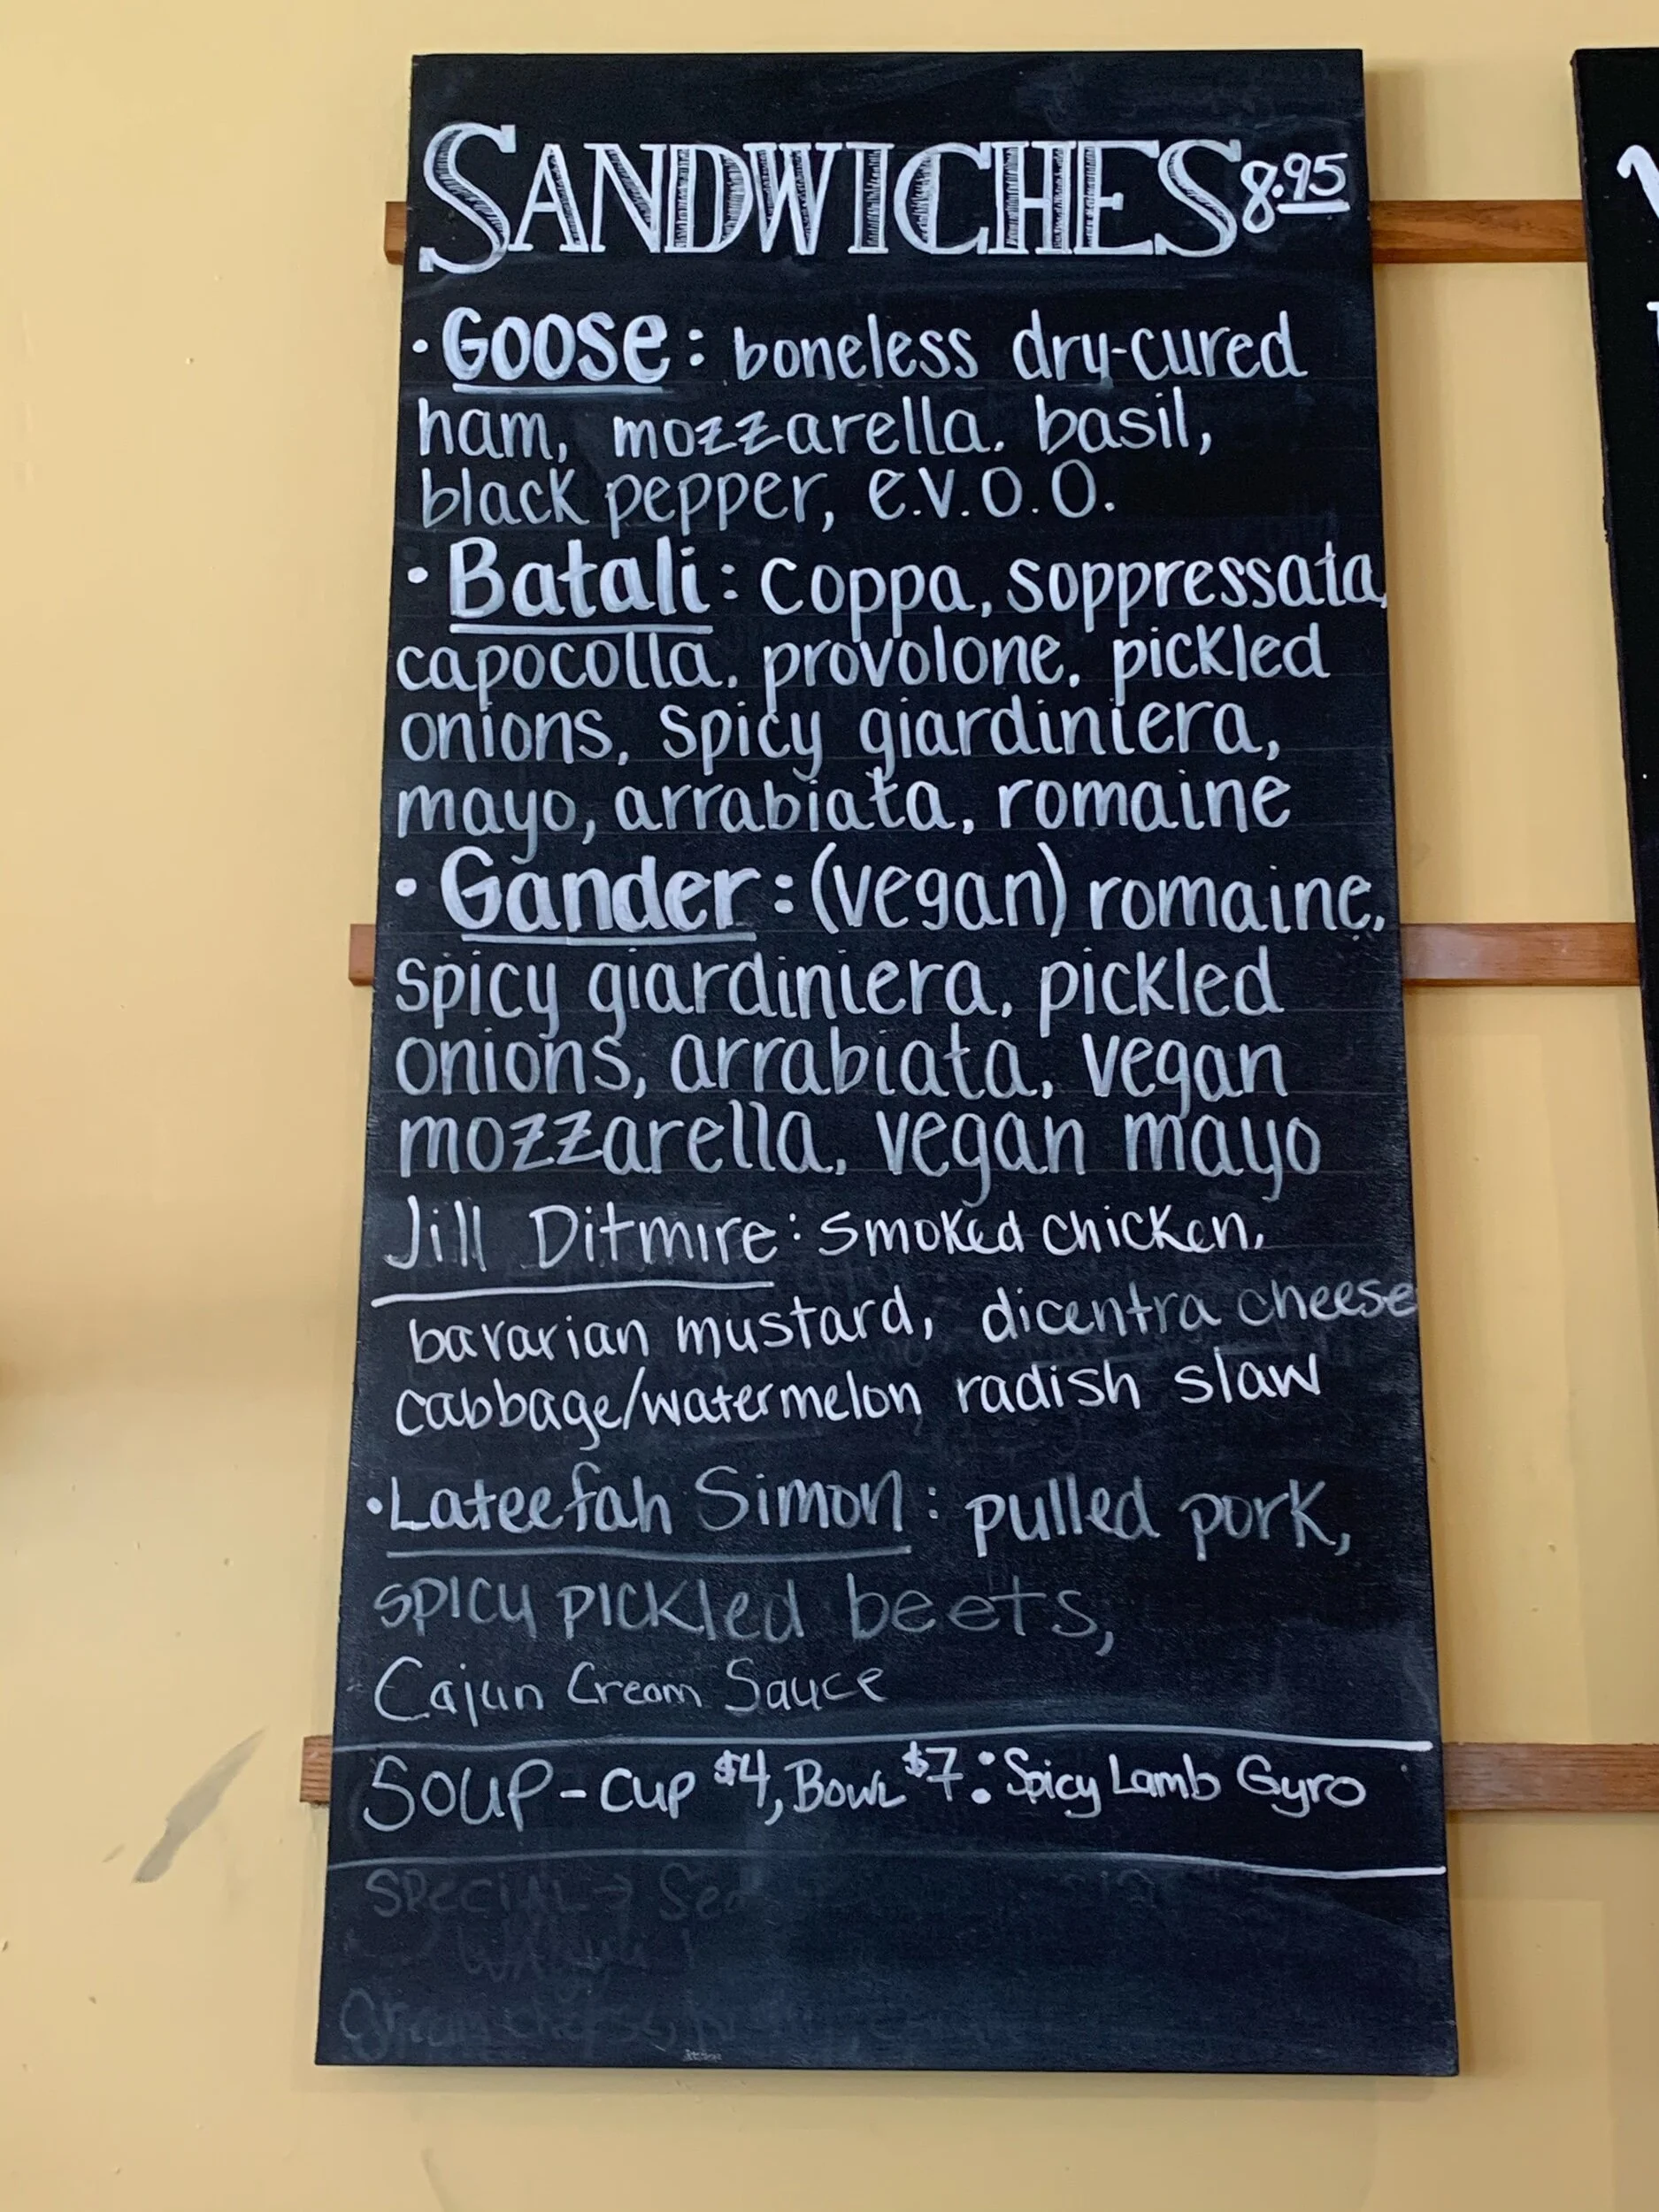 SANDWICHES 8.95
· Goose: boneless dry-cured
ham, mozzarella. basil,
black pepper, e.v.o.o.
· Batali: coppa, soppressata,
capocolla, provolone, pickled
onions, spicy giardiniera,
mayo, arrabiata, romaine
· Gander: (vegan) romaine,
spicy giardiniera, pickled
onions, arrabiata, vegan
mozzarella, vegan mayo
Jill Ditmire: smoked chicken,
bavarian mustard, dicentra cheese
cabbage/watermelon radish slaw
· Lateefah Simon: pulled pork,
spicy pickled beets,
Cajun Cream Sauce
SOUP - cup $4, Bowl $7: Spicy Lamb Gyro
SPECIAL →
cream cheese,